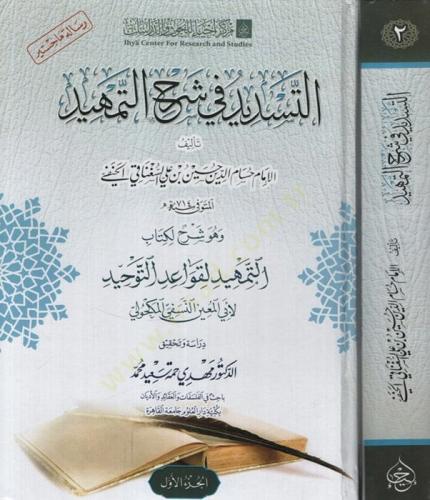 مركز إحياء للبحوث والدراسات
Ihya Center For Research and Studies
رسالة ماجستير
التسديد في شرح التمهيد
تأليف
الإمام حسام الدين حسين بن علي السغناقي الحنفي
المتوفى ٧١٤هـ
وهو شرح لكتاب
التمهيد لقواعد التوحيد
لأبي المعين النسفي المكحولي
دراسة وتحقيق
الدكتور مهدي حمة سعيد محمد
باحث في الفلسفات والعقائد والأديان
بكلية دار العلوم جامعة القاهرة
الجزء الأول
٢
التسديد في شرح التمهيد
تأليف
الإمام حسام الدين حسين بن علي السغناقي الحنفي